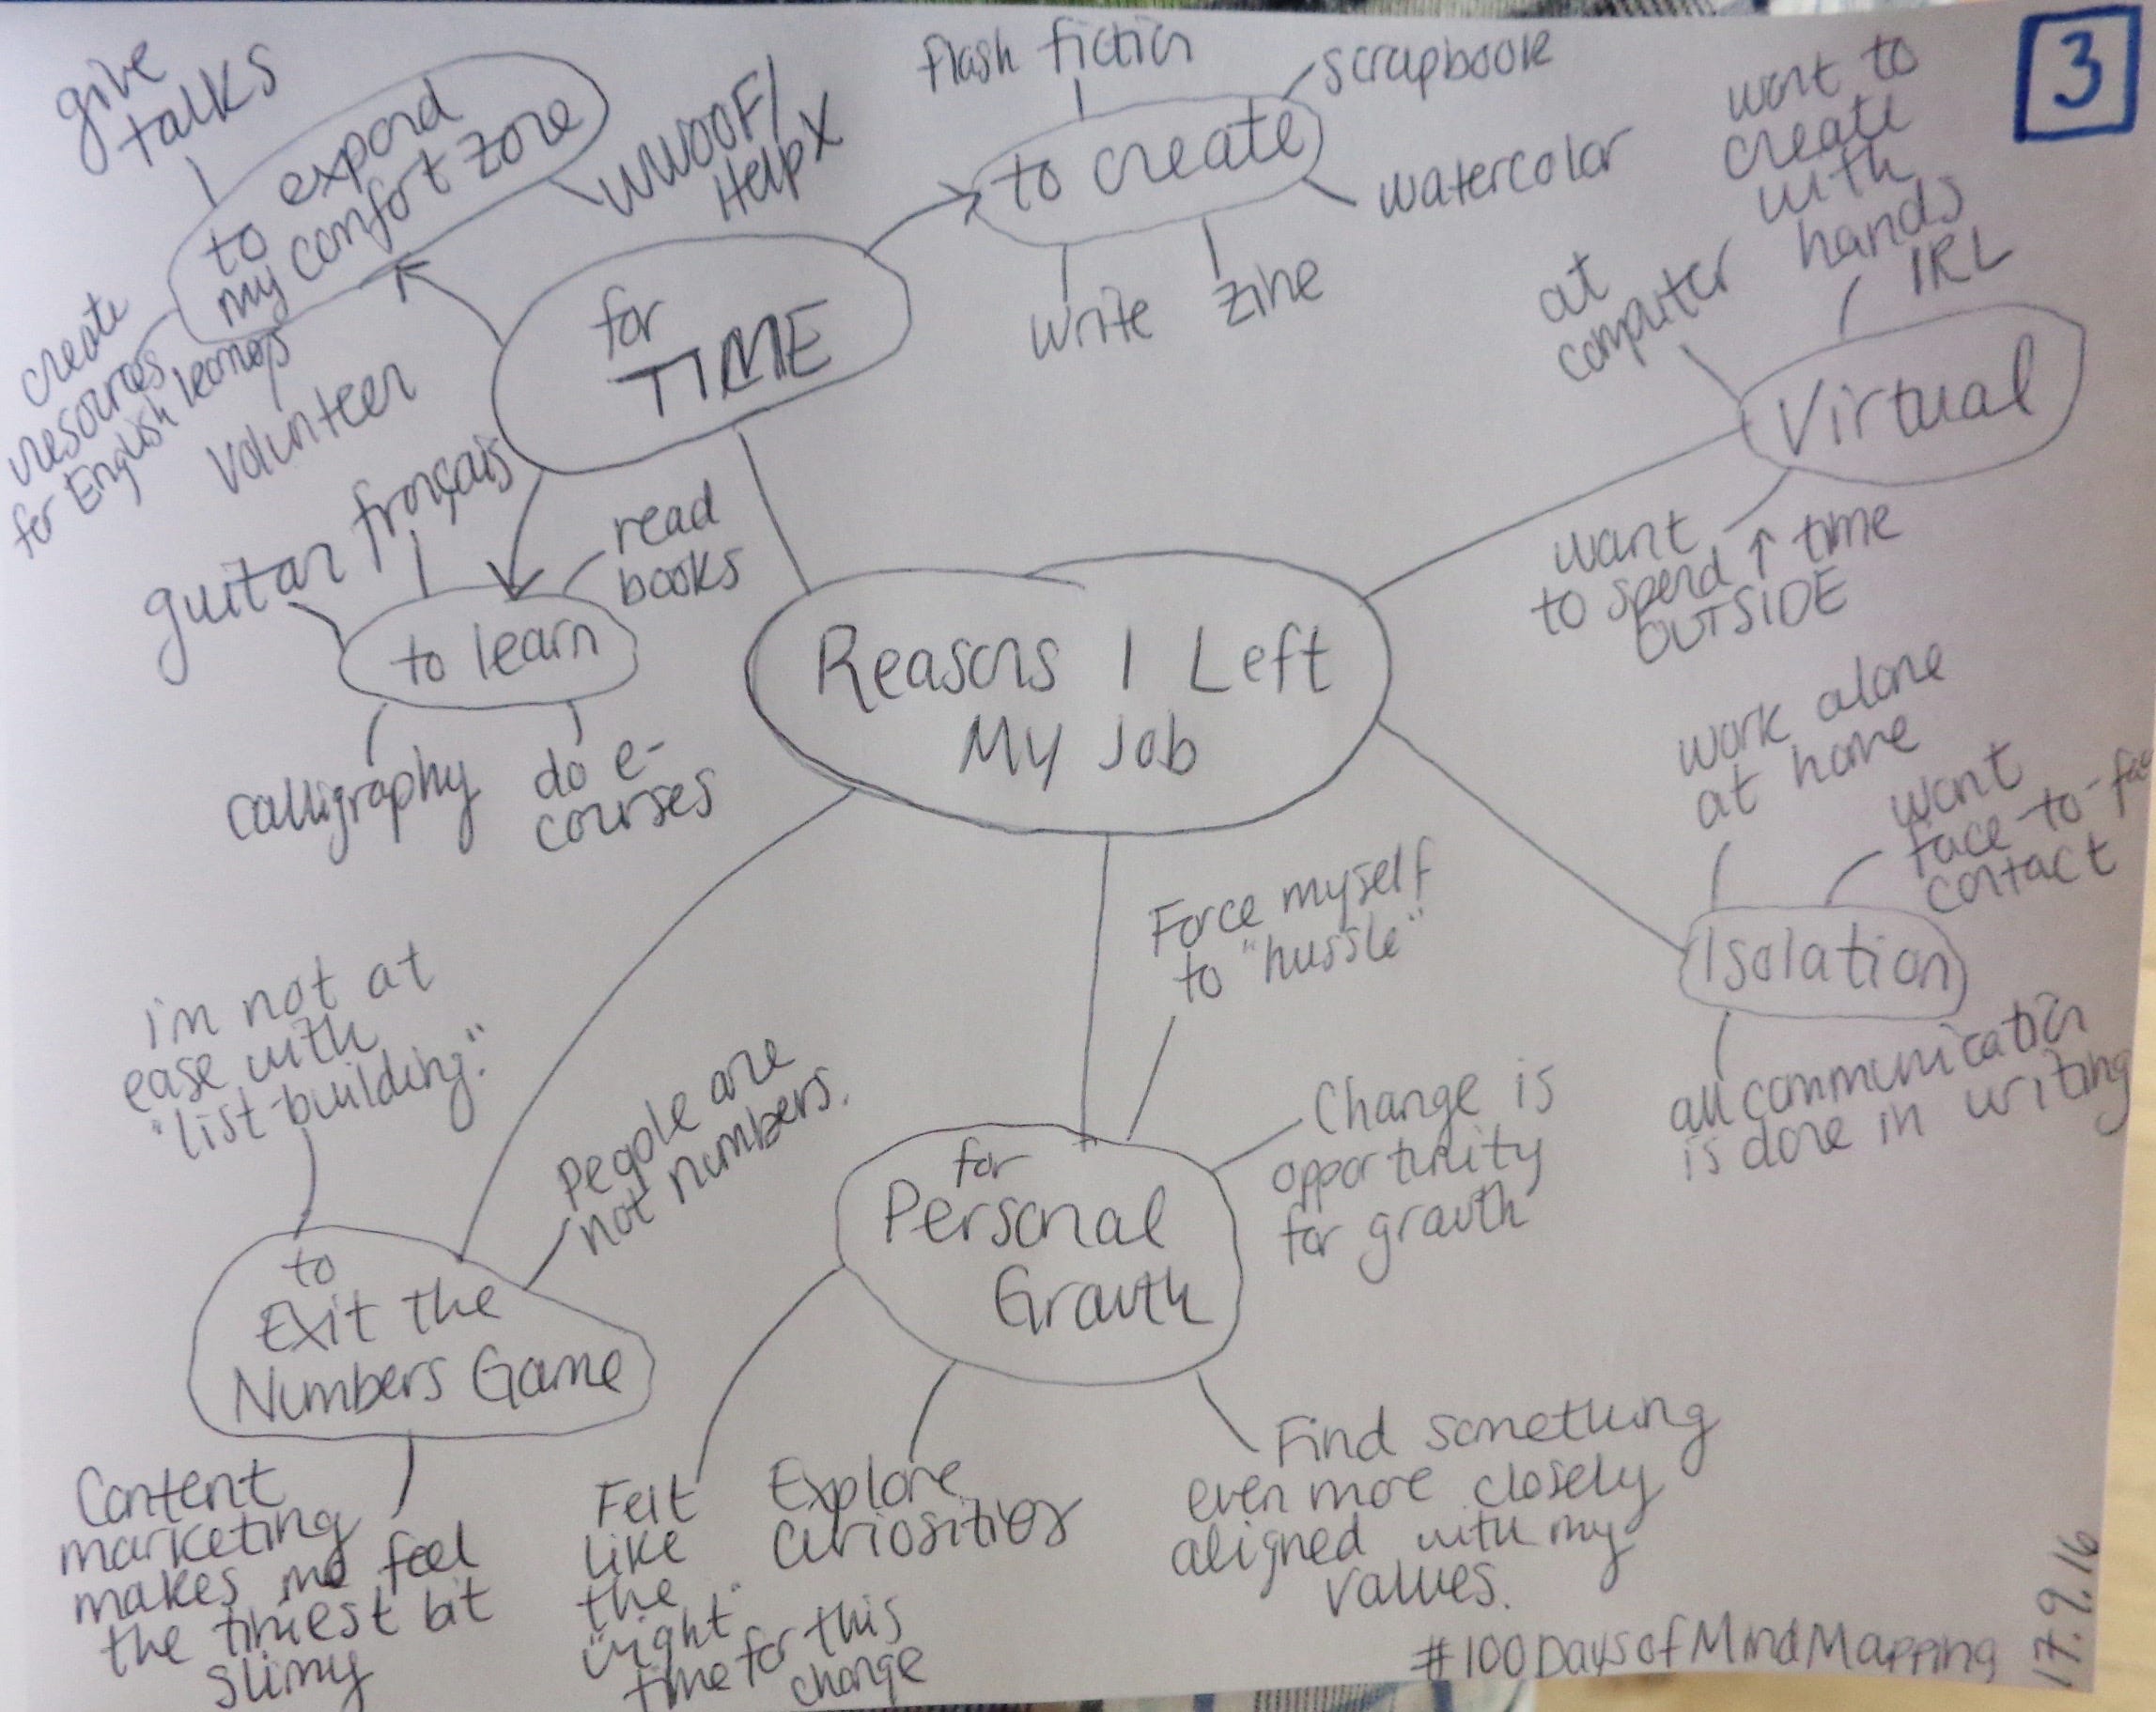 3
give
talks
to expand
my comfort zone
WWOOF/
HelpX
create
resources
for English learners
volunteer
for
TIME
flash fiction
scrapbook
to create
watercolor
write
zine
want to
create
with
hands
IRL
at
computer
Virtual
want
to spend ↑ time
OUTSIDE
guitar
français
read
books
to learn
calligraphy
do e-
courses
Reasons I Left
My Job
work alone
at home
want
face-to-fac
contact
Isolation
all communication
is done in writing
i'm not at
ease with
"list-building."
People are
not numbers.
to
Exit the
Numbers Game
Content
marketing
makes me feel
the tiniest bit
slimy
Force myself
to "hussle"
for
Personal
Growth
Change is
opportunity
for growth
Felt
like
the
"right"
time for this
change
Explore
Curiosities
Find something
even more closely
aligned with my
values.
#100DaysofMindMapping
17.9.16